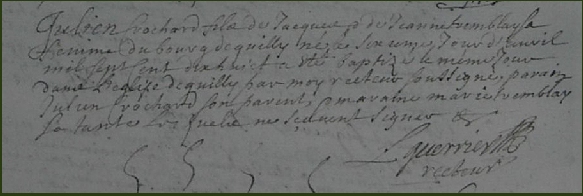 Julien Crochard fils de Jacques et de Jeanne tremblay sa
femme du bourg de quilly né le sixeume Jour d'auvril
mil sept cent dix huict a été baptizé le meme Jour
dans l'eglize de quilly par moy recteur soussigné, parain
Julien Crochard son parent, maraine marie tremblay
sa tante Lesquelz ne scavent signer &
Guerrier
recteur